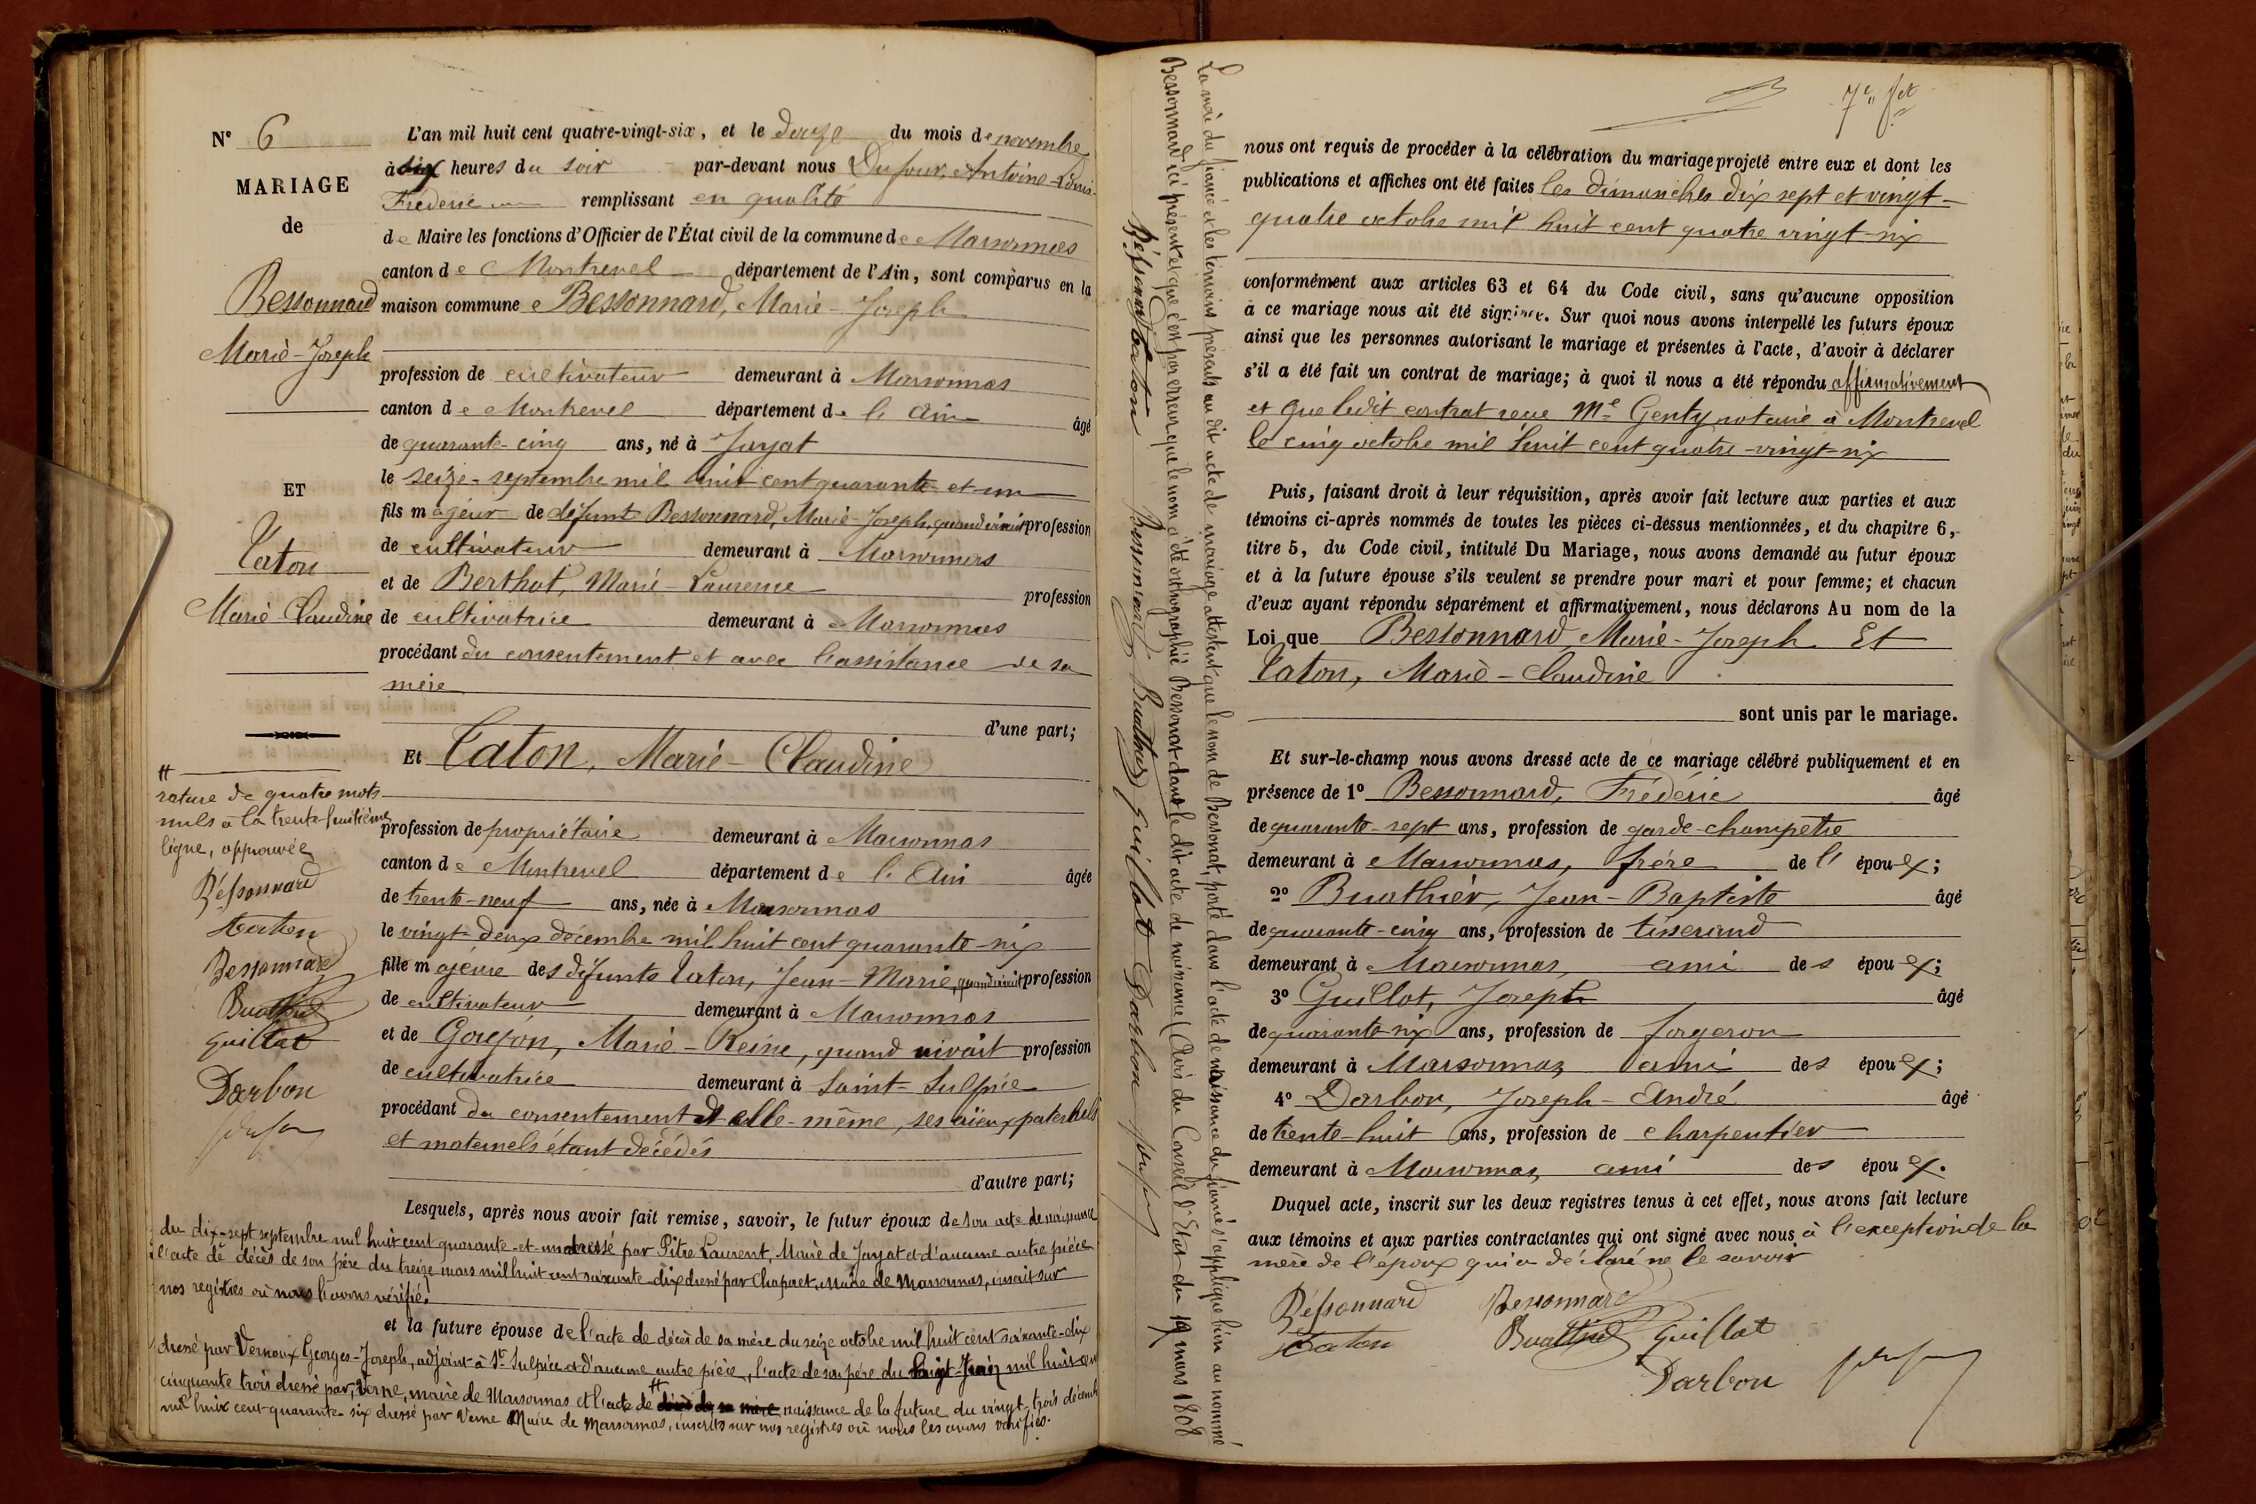 N° 6
MARIAGE
de
Bessonnard
Marie-Joseph
ET
Caton
Marie Claudine
#
rature de quatre mots
nuls à la trente-huitième
ligne, approuvée
Béssonnard
Caton
Bessonnard
Buathier
Guillat
Darbon
L'an mil huit cent quatre-vingt-six, et le douze du mois de novembre
à six heures du soir par-devant nous Dufour, Antoine-Louis-
Frédéric remplissant en qualité
de Maire les fonctions d'Officier de l'État civil de la commune de Marsonnas
canton de Montrevel département de l'Ain, sont comparus en la
maison commune Bessonnard, Marie-Joseph
profession de cultivateur demeurant à Marsonnas
canton de Montrevel département de l'Ain âgé
de quarante-cinq ans, né à Jayat
le seize septembre mil huit cent quarante et un
fils majeur de défunt Bessonnard, Marie-Joseph, quand vivait profession
de cultivateur demeurant à Marsonnas
et de Berthot, Marie-Laurence profession
de cultivatrice demeurant à Marsonnas
procédant du consentement et avec l'assistance de sa
mère
d'une part;
Et Caton, Marie-Claudine
profession de propriétaire demeurant à Marsonnas
canton de Montrevel département de l'Ain âgée
de trente-neuf ans, née à Marsonnas
le vingt-deux décembre mil huit cent quarante-six
fille majeure des défunts Caton, Jean-Marie, quand vivait profession
de cultivateur demeurant à Marsonnas
et de Goyon, Marie-Reine, quand vivait profession
de cultivatrice demeurant à Saint-Sulpice
procédant du consentement d'elle-même, ses aïeux paternels
et maternels étant décédés
d'autre part;
Lesquels, après nous avoir fait remise, savoir, le futur époux de son acte de naissance
du dix-sept septembre mil huit cent quarante-et-un dressé par Pitre Laurent, Maire de Jayat et d'aucune autre pièce
l'acte de décès de son père du treize mars mil huit cent soixante-dix dressé par Chaparet, maire de Marsonnas, inscrit sur
nos registres où nous l'avons vérifié.
et la future épouse de l'acte de décès de sa mère du seize octobre mil huit cent soixante-dix
dressé par Vernoux Georges-Joseph, adjoint à St Sulpice et d'aucune autre pièce, l'acte de son père du vingt-Juin mil huit cent
cinquante trois dressé par Verne, maire de Marsonnas et l'acte de # naissance de la future du vingt-trois décembre
mil huit cent quarante-six dressé par Verne Maire de Marsonnas, inscrits sur nos registres où nous les avons vérifiés.
La mère du fiancé et les témoins présents au dit acte de mariage attestent que le nom de Bessonat, porté dans l'acte de naissance du fiancé s'applique bien au nommé
Bessonnard ici présent et que c'est par erreur que le nom a été orthographié Bessonat dans le dit acte de naissance (Avis du Conseil d'Etat du 19 mars 1808
Béssonnard Caton Bessonnard Buathier Guillat Darbon
7e fet
nous ont requis de procéder à la célébration du mariage projeté entre eux et dont les
publications et affiches ont été faites les dimanches dix sept et vingt-
quatre octobre mil huit cent quatre vingt-six
conformément aux articles 63 et 64 du Code civil, sans qu'aucune opposition
à ce mariage nous ait été signifiée. Sur quoi nous avons interpellé les futurs époux
ainsi que les personnes autorisant le mariage et présentes à l'acte, d'avoir à déclarer
s'il a été fait un contrat de mariage; à quoi il nous a été répondu affirmativement
et que ledit contrat reçu Me Genty notaire à Montrevel
le cinq octobre mil huit cent quatre-vingt-six
Puis, faisant droit à leur réquisition, après avoir fait lecture aux parties et aux
témoins ci-après nommés de toutes les pièces ci-dessus mentionnées, et du chapitre 6,
titre 5, du Code civil, intitulé Du Mariage, nous avons demandé au futur époux
et à la future épouse s'ils veulent se prendre pour mari et pour femme; et chacun
d'eux ayant répondu séparément et affirmativement, nous déclarons Au nom de la
Loi que Bessonnard, Marie-Joseph Et
Caton, Marie-Claudine
sont unis par le mariage.
Et sur-le-champ nous avons dressé acte de ce mariage célébré publiquement et en
présence de 1° Bessonnard, Frédéric âgé
de quarante-sept ans, profession de garde-champetre
demeurant à Marsonnas, frère de l' époux;
2° Buathier, Jean-Baptiste âgé
de quarante-cinq ans, profession de tisserand
demeurant à Marsonnas, ami des époux;
3° Guillot, Joseph âgé
de quarante-six ans, profession de forgeron
demeurant à Marsonnas ami des époux;
4° Darbon, Joseph-André âgé
de trente-huit ans, profession de charpentier
demeurant à Marsonnas, ami des époux.
Duquel acte, inscrit sur les deux registres tenus à cet effet, nous avons fait lecture
aux témoins et aux parties contractantes qui ont signé avec nous à l'exception de la
mère de l'époux qui a déclaré ne le savoir
Béssonnard Bessonnard
Caton Buathier Guillat
Darbon